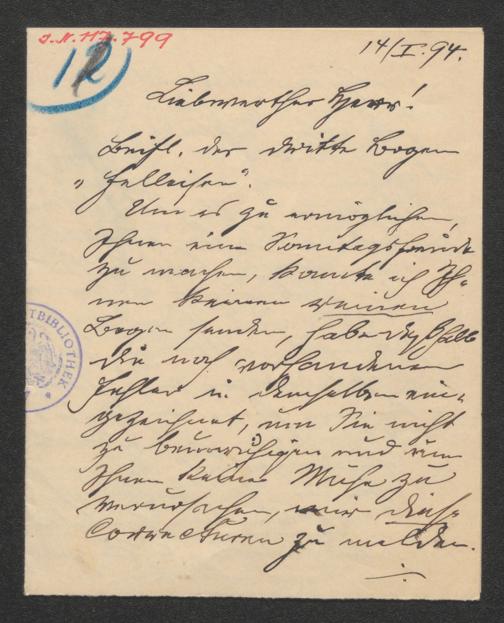 J.N. 117.799
12
14/I. 94.
Liebwerther Herr!
Beifl. der dritte Bogen
„Felleisen“.
Um es zu ermöglichen,
Ihnen eine Sonntagsfreude
zu machen, konnte ich Ih-
nen keinen reinen
Bogen senden, habe deßhalb
die noch vorhandenen
Fehler in demselben ein-
gezeichnet, um Sie nicht
zu beunruhigen und um
Ihnen keine Mühe zu
verursachen, mir diese
Correcturen zu melden.
TBIBLIOTHEK